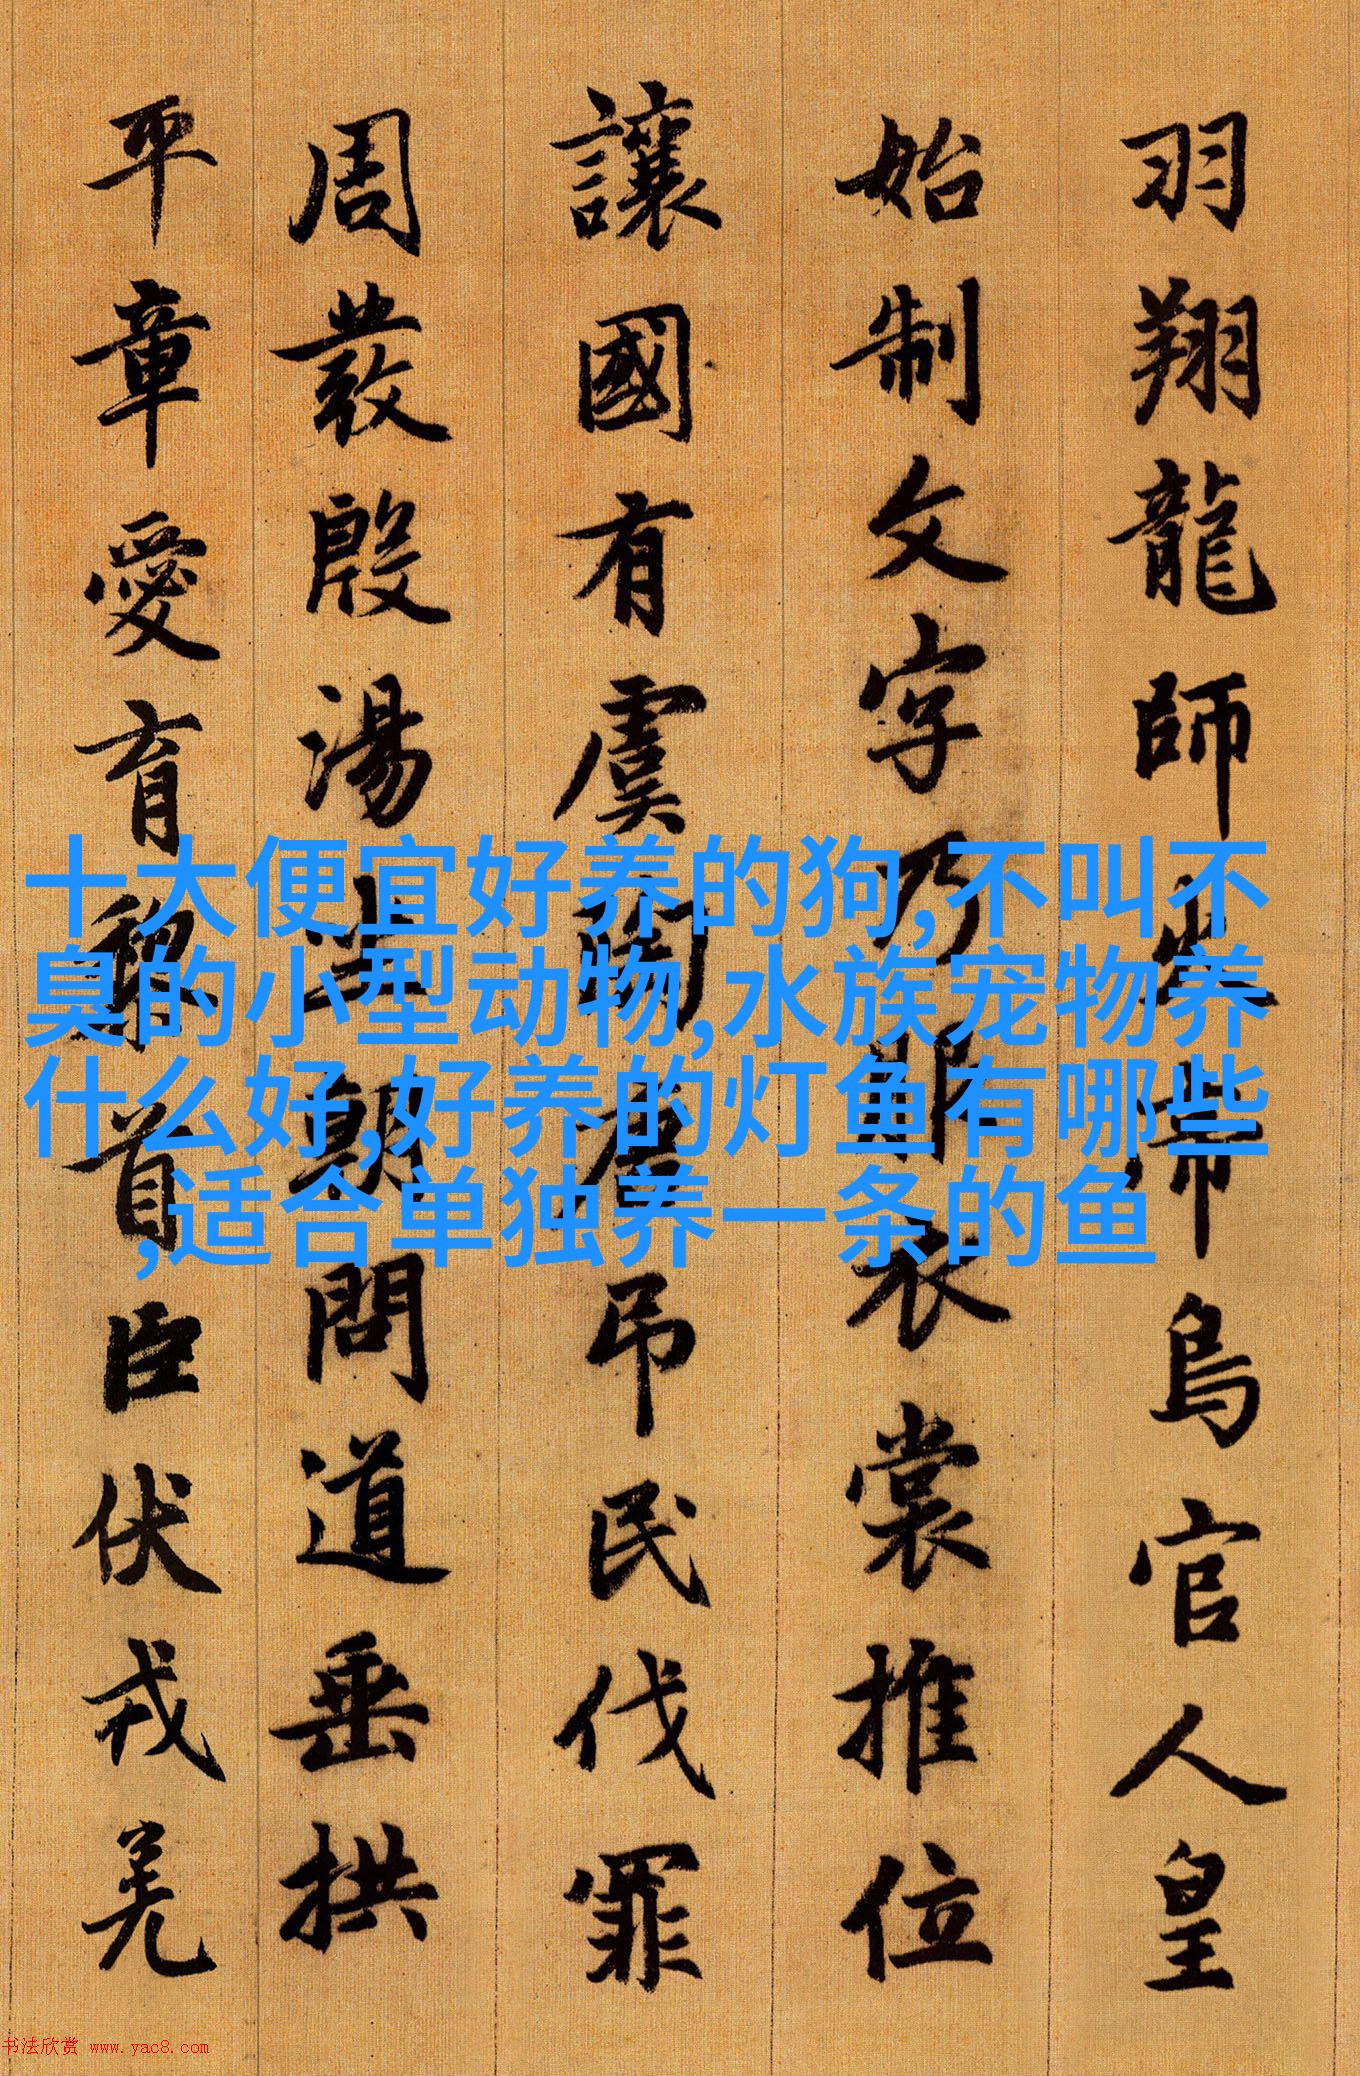 羽翔龍師火帝鳥官人皇
始制文字乃服衣裳推位
讓國有虞陶唐吊民伐罪
周發殷湯坐朝問道垂拱
平章愛育黎首臣伏戎羌
十大便宜好养的狗,不叫不
臭的小型动物,水族宠物养
什么好,好养的灯鱼有哪些
,适合单独养一条的鱼
书法欣赏 www.yac8.com